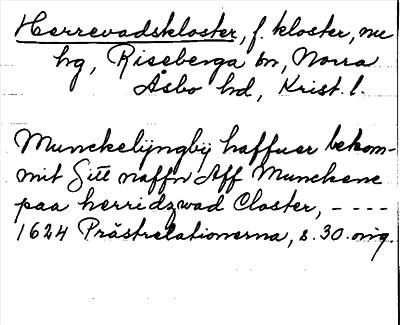 Herrevadskloster, f. kloster, nu
hg, Riseberga sn, Norra
Åsbo hd, Krist. l.
Munckelijngbij haffuer bekom-
mit Sitt naffn Aff Munckene
paa herridzwad Closter, ----
1624 Prästrelationerna, s. 30. orig.